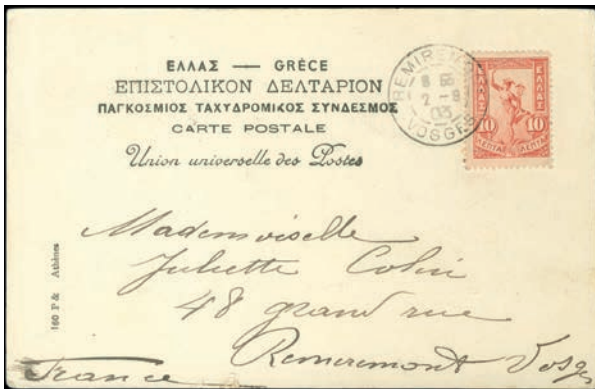 ΕΛΛΑΣ — GRÈCE
ΕΠΙΣΤΟΛΙΚΟΝ ΔΕΛΤΑΡΙΟΝ
ΠΑΓΚΟΣΜΙΟΣ ΤΑΧΥΔΡΟΜΙΚΟΣ ΣΥΝΔΕΣΜΟΣ
CARTE POSTALE
Union universelle des Postes
03
VOSGES
ΕΛΛΑΣ ΕΛΛΑΣ
10 10
ΛΕΠΤΑ ΛΕΠΤΑ
Mademoiselle
Juliette Colin
48 grand rue
Remiremont Vosges
France
160 P & Athènes